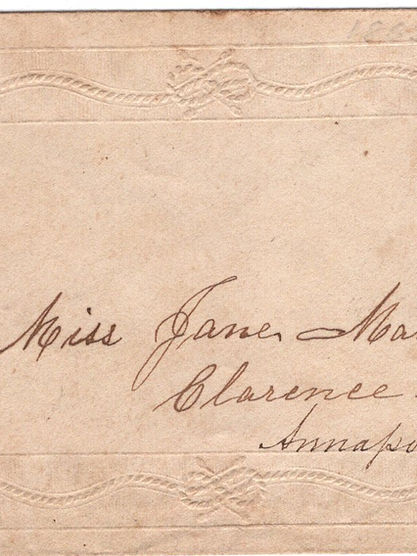 Miss Jane Ma
Clarence
Annapo